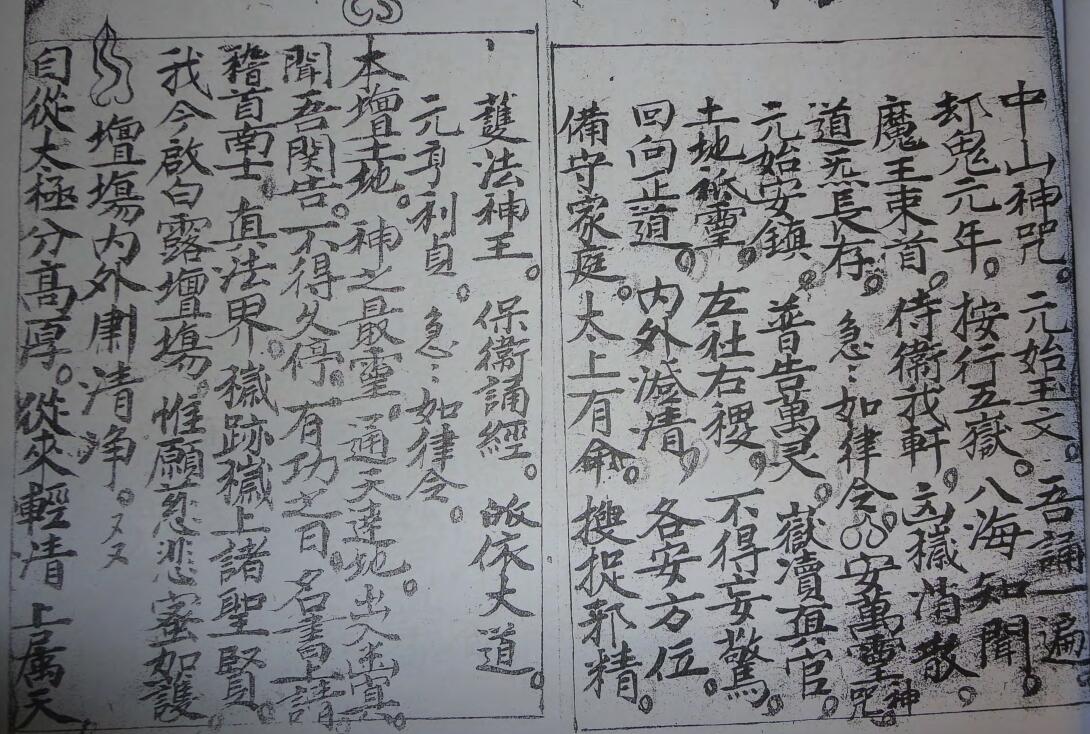 中山神咒。元始玉文。吾誦一遍
却鬼元年。按行五嶽。八海知聞。
魔王束首。侍衛我軒。凶穢消散。
道炁長存。急〻如律令。安萬靈神咒
元始安鎮。普告萬灵。嶽瀆真官。
土地祗靈，左社右稷，不得妄驚。
回向正道，内外澄清，各安方位。
備守家庭。太上有命。搜捉邪精。
護法神王。保衛誦經。皈依大道。
元亨利貞。急〻如律令。
本壇土地。神之最靈。通天達地。出入幽冥。
聞吾関告。不得久停。有功之日。名書上請。
稽首南士。真法界。穢跡穢上諸聖賢。
我今啟白露壇塲。惟願慈悲密如護。
壇塲内外肅清净。又又
自從太極分高厚。從來輕清上属天。